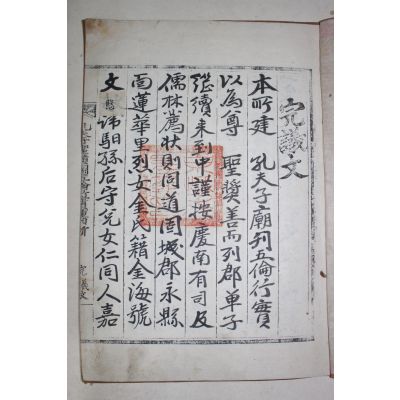 完議文
本所建 孔夫子廟列五倫行實
以為尊 聖奬善而列郡單子
繼續来到中謹按慶南有司及
儒林薦状則同道固城郡永縣
面蓮華里烈女金氏籍金海號
文 諱馹孫后守兌女仁同人嘉
完議文